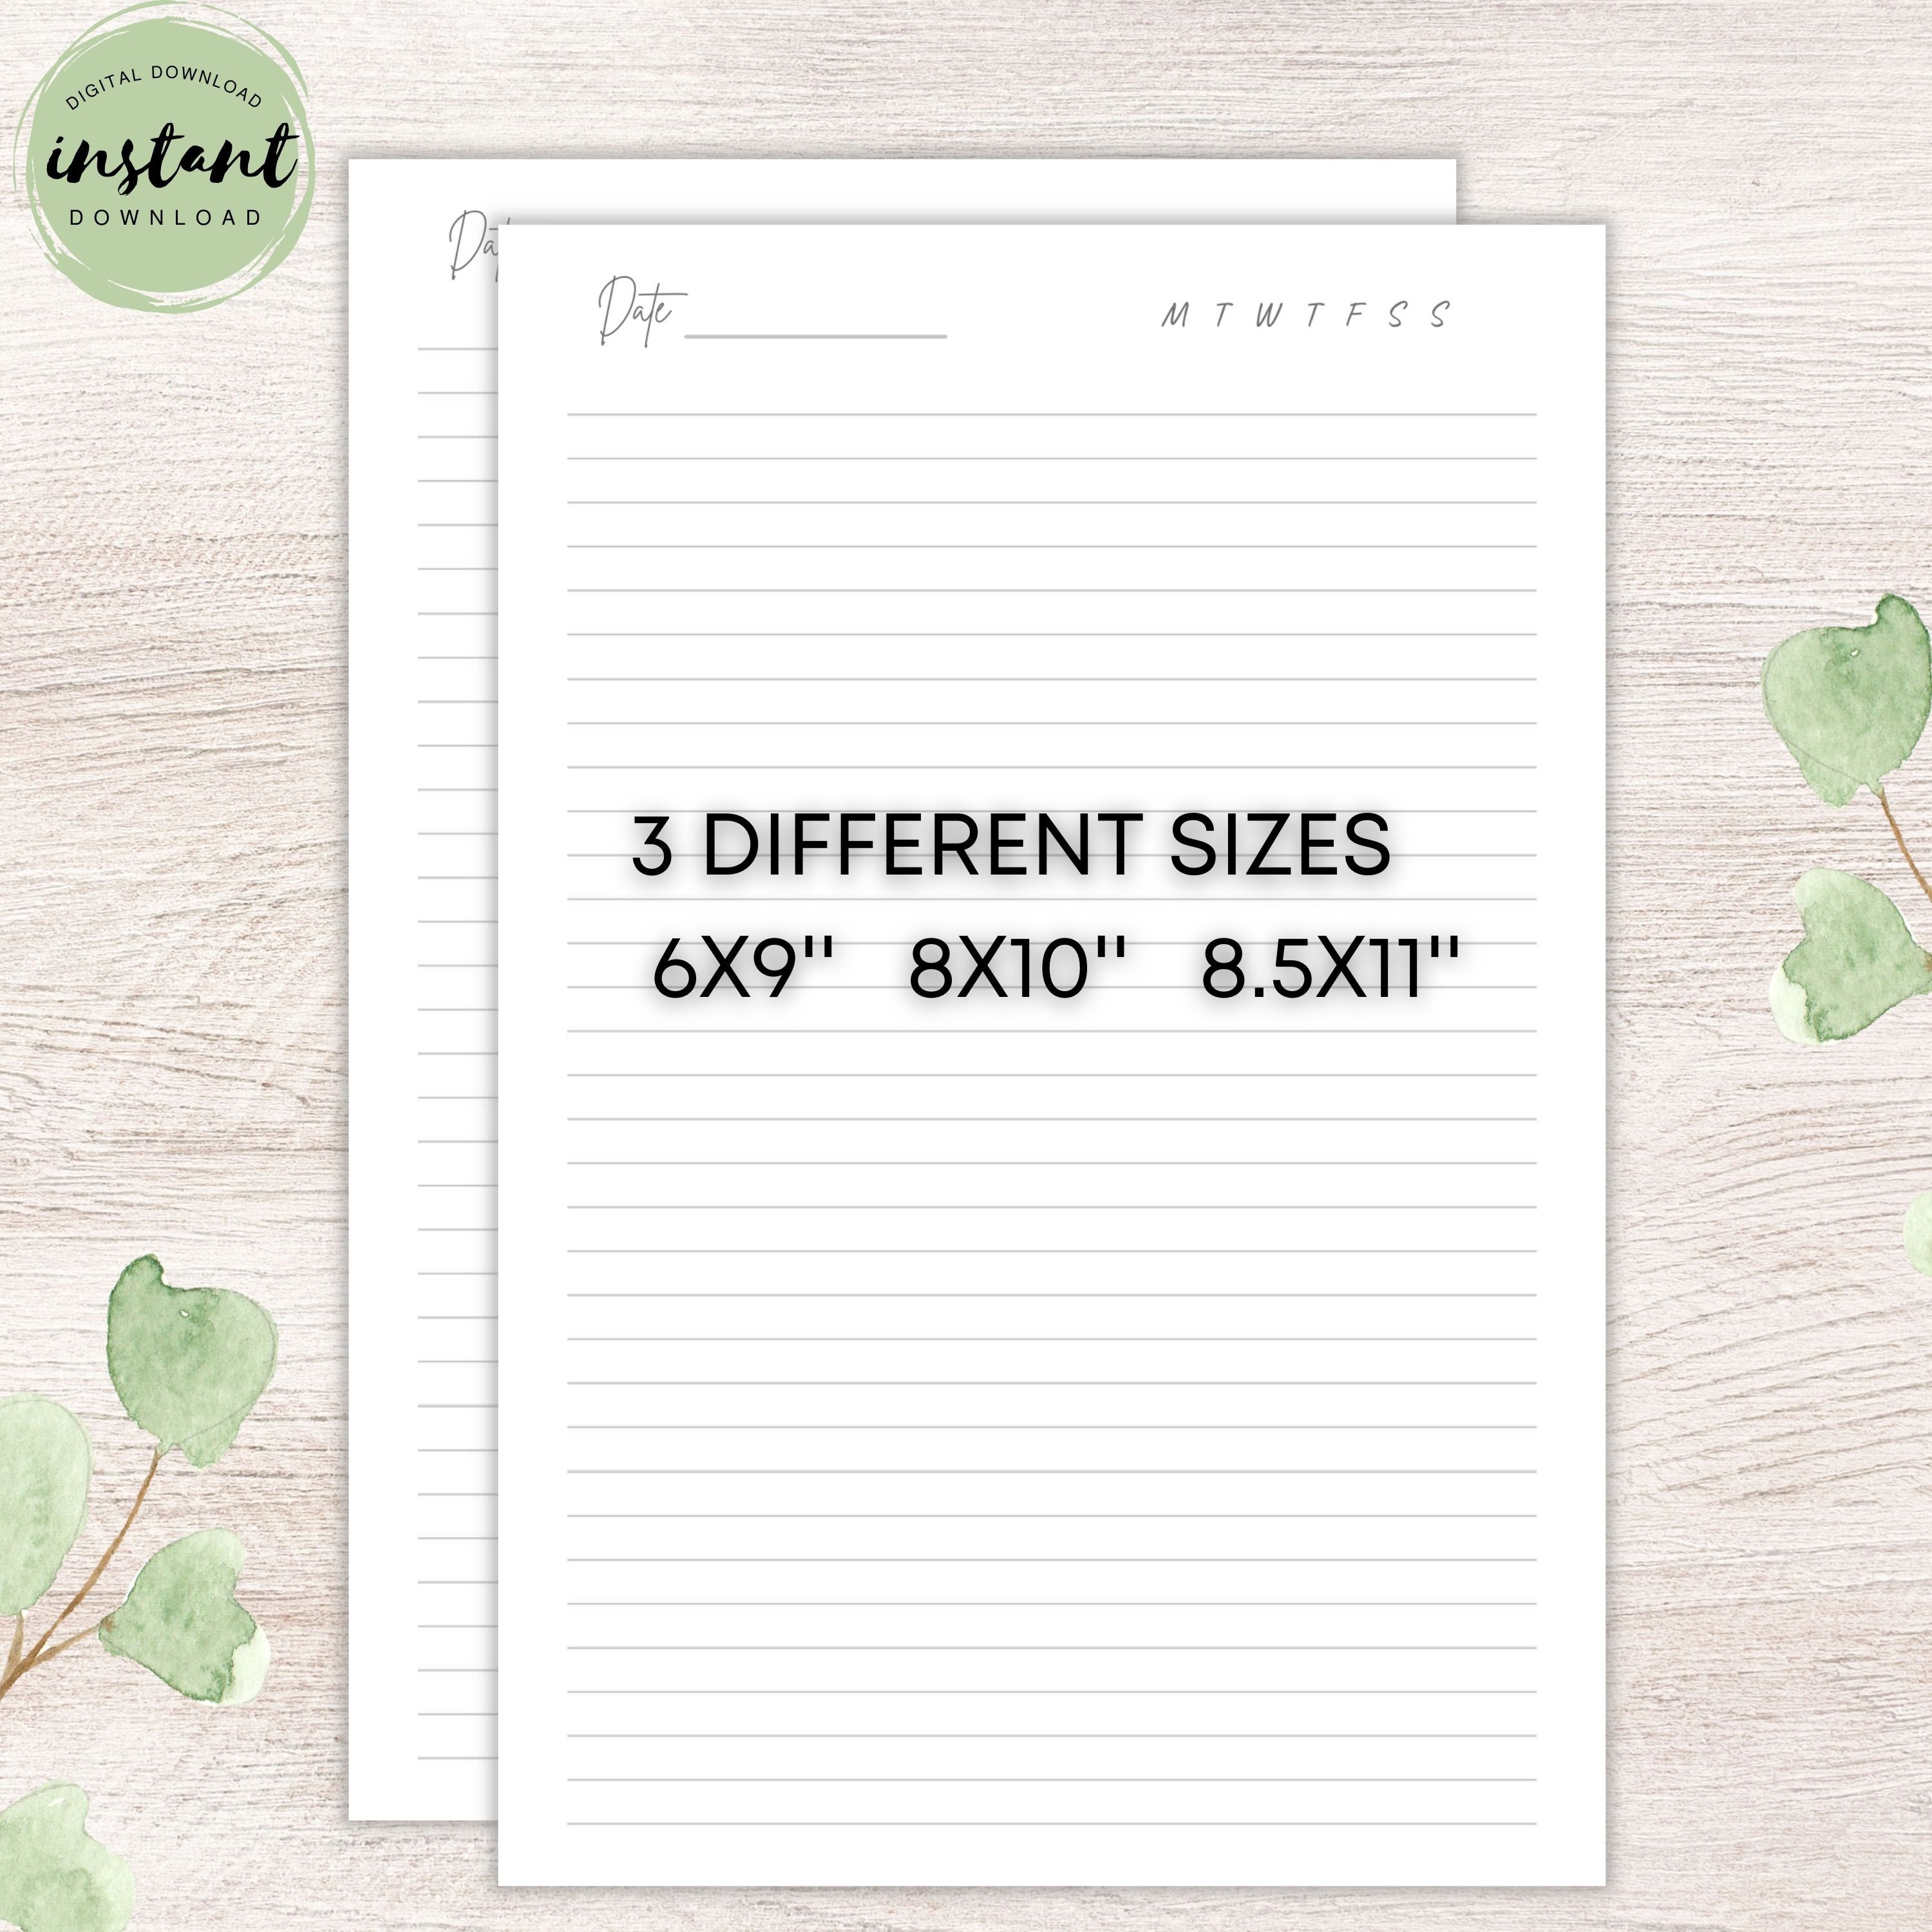 DIGITAL DOWNLOAD
instant
DOWNLOAD
Date
M T W T F S S
3 DIFFERENT SIZES
6X9" 8X10" 8.5X11"